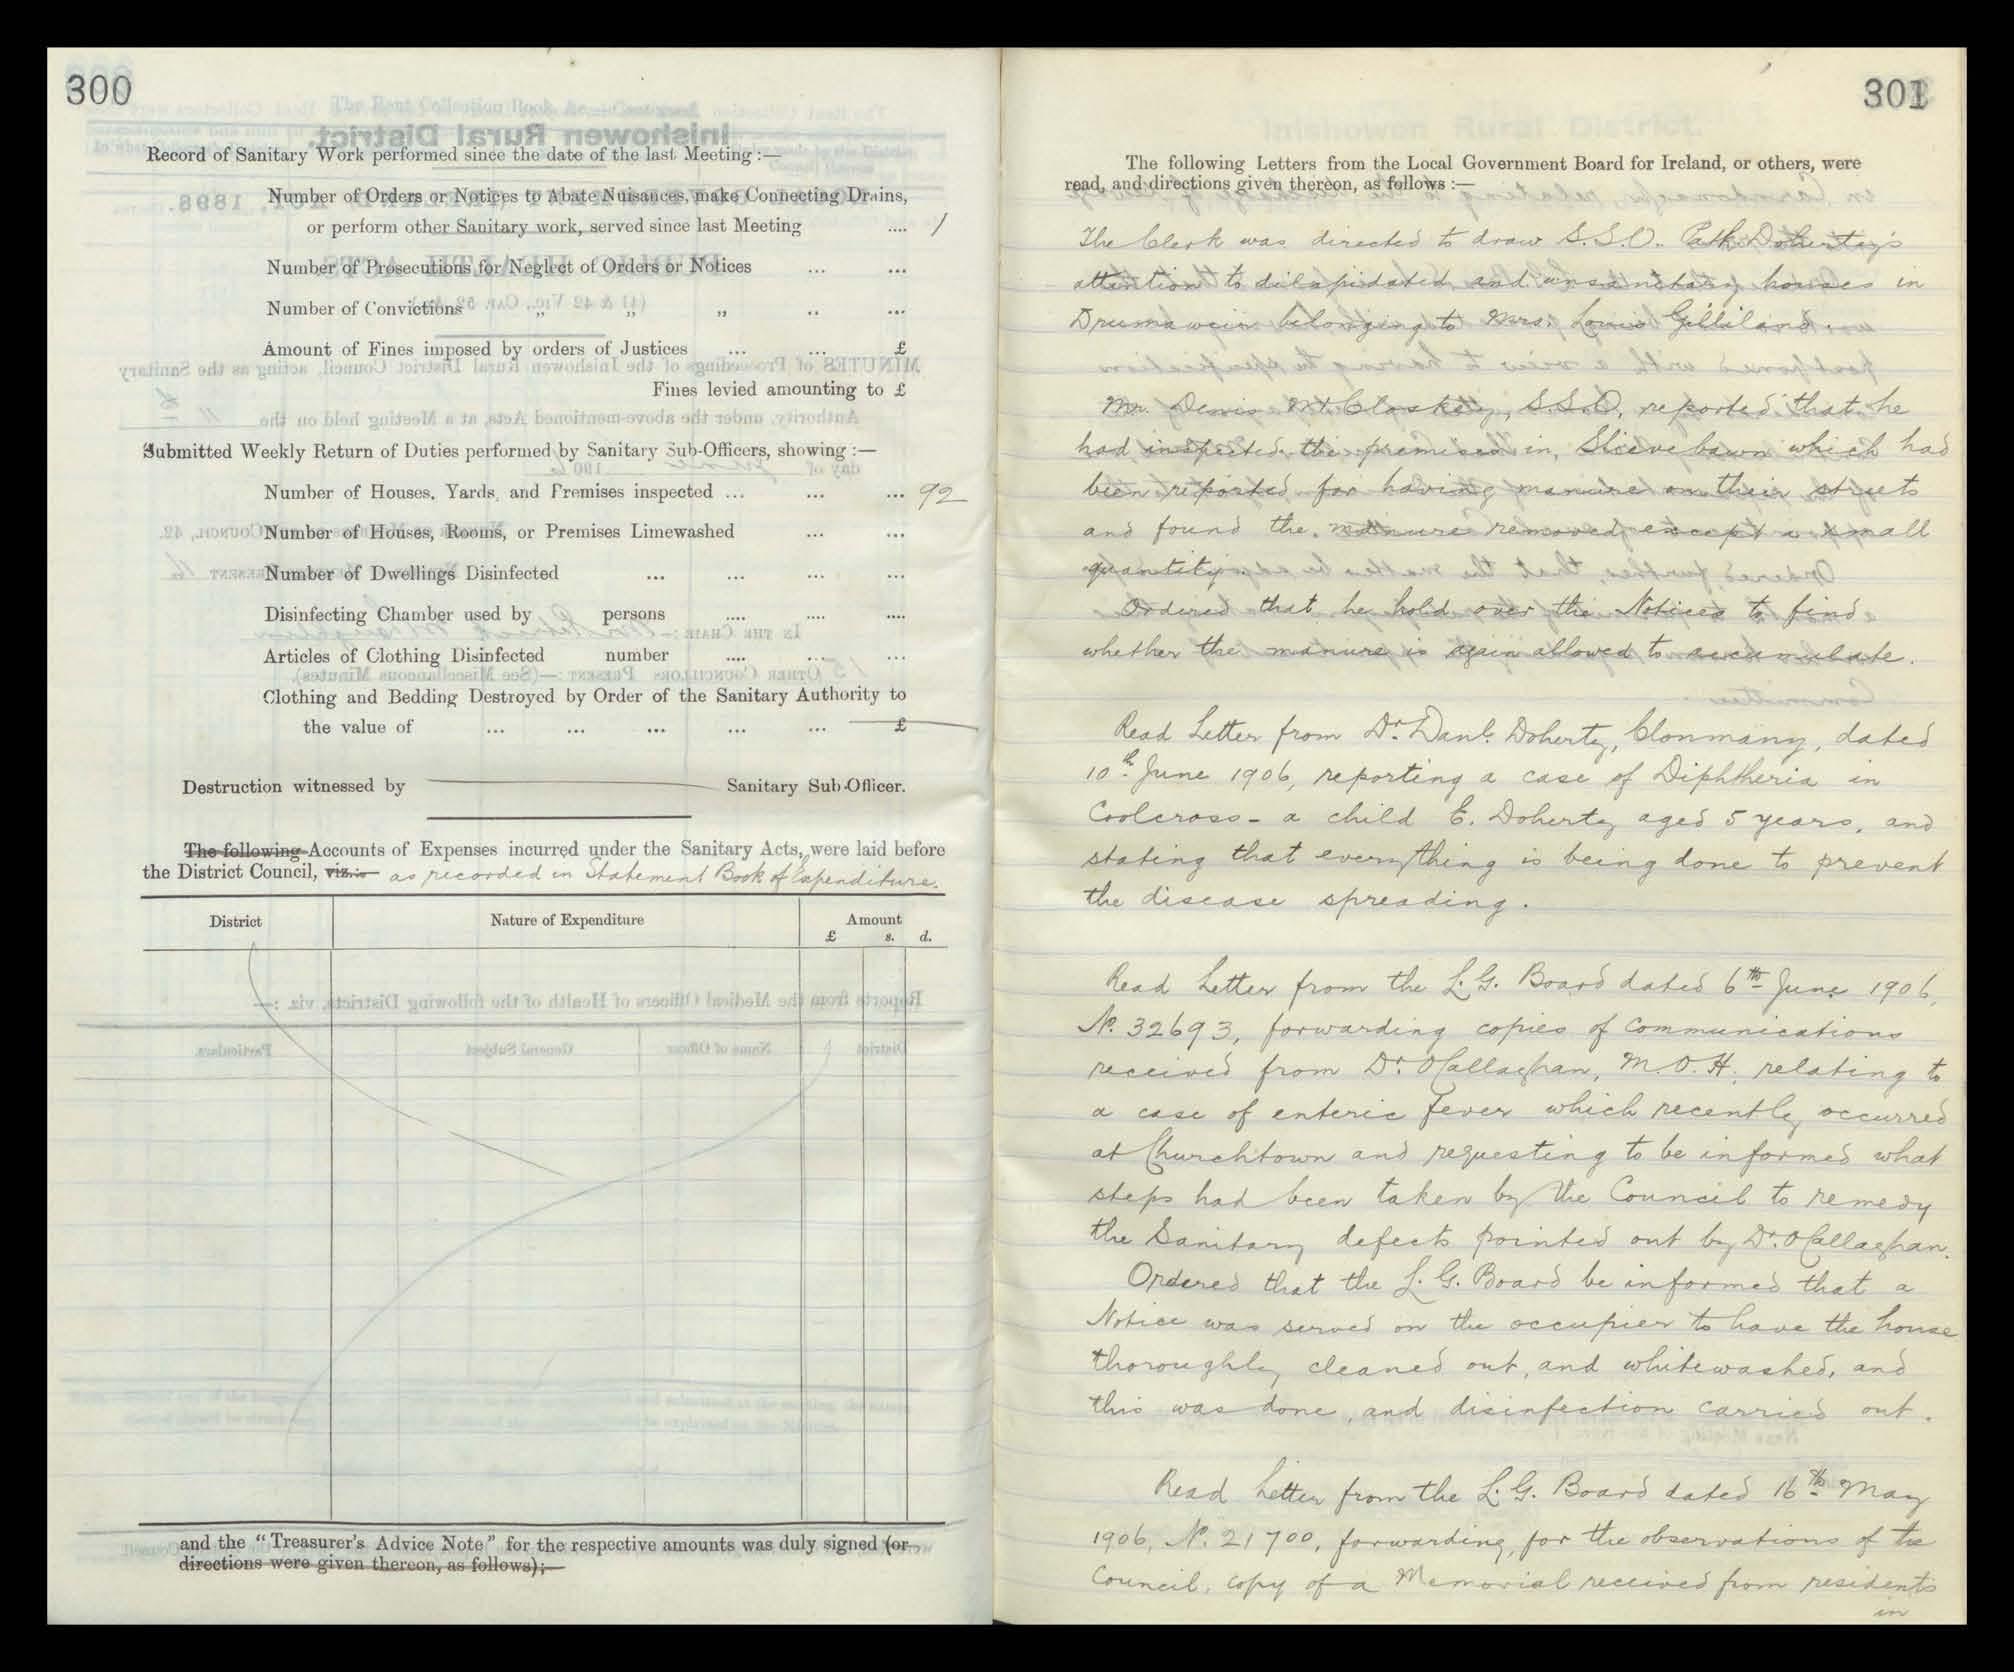 300
Record of Sanitary Work performed since the date of the last Meeting :—
Number of Orders or Notices to Abate Nuisances, make Connecting Drains,
or perform other Sanitary work, served since last Meeting .... 1
Number of Prosecutions for Neglect of Orders or Notices ... ...
Number of Convictions „ „ „ .. ...
Amount of Fines imposed by orders of Justices ... ... £
Fines levied amounting to £
Submitted Weekly Return of Duties performed by Sanitary Sub-Officers, showing :—
Number of Houses, Yards, and Premises inspected ... ... ... 92
Number of Houses, Rooms, or Premises Limewashed ... ...
Number of Dwellings Disinfected ... ... ... ...
Disinfecting Chamber used by persons .... .... ....
Articles of Clothing Disinfected number .... ... ...
Clothing and Bedding Destroyed by Order of the Sanitary Authority to
the value of ... ... ... ... ... £
Destruction witnessed by Sanitary Sub-Officer.
The following Accounts of Expenses incurred under the Sanitary Acts, were laid before
the District Council, viz.:— as recorded in Statement Book of Expenditure.
District Nature of Expenditure Amount
£ s. d.
and the "Treasurer's Advice Note" for the respective amounts was duly signed (or
directions were given thereon, as follows):—
301
The following Letters from the Local Government Board for Ireland, or others, were
read, and directions given thereon, as follows :—
The Clerk was directed to draw S.S.O. Patk. Doherty's
attention to dilapidated and unsanitary houses in
Drumaweir belonging to Mrs. Louis Gilliland.
Mr. Denis McCloskey, S.S.O, reported that he
had inspected the premises in Slievebawn which had
been reported for having manure on their streets
and found the manure removed except a small
quantity.
Ordered that he hold over the Notices to find
whether the manure is again allowed to accumulate.
Read Letter from Dr. Danl. Doherty, Clonmany, dated
10th June 1906, reporting a case of Diphtheria in
Coolcross - a child E. Doherty aged 5 years, and
stating that everything is being done to prevent
the disease spreading.
Read Letter from the L. G. Board dated 6th June 1906,
No. 32693, forwarding copies of communications
received from Dr. O'Callaghan, M.O.H., relating to
a case of enteric fever which recently occurred
at Churchtown and requesting to be informed what
steps had been taken by the Council to remedy
the Sanitary defects pointed out by Dr. O'Callaghan.
Ordered that the L. G. Board be informed that a
Notice was served on the occupier to have the house
thoroughly cleaned out, and whitewashed, and
this was done, and disinfection carried out.
Read Letter from the L. G. Board dated 16th May
1906, No. 21700, forwarding, for the observations of the
Council, copy of a Memorial received from residents
in